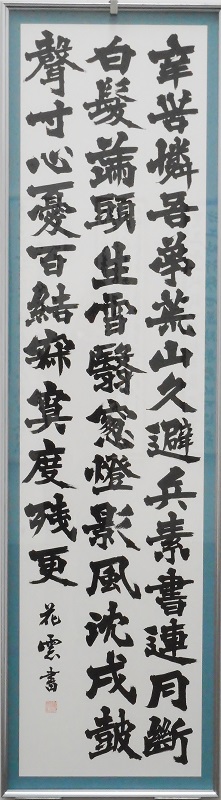 辛苦憐吾弟荒山久避兵素書連月斷
白髮滿頭生雪翳窓燈影風沈戍皷
聲寸心憂百結寂寞度残更
花雲書